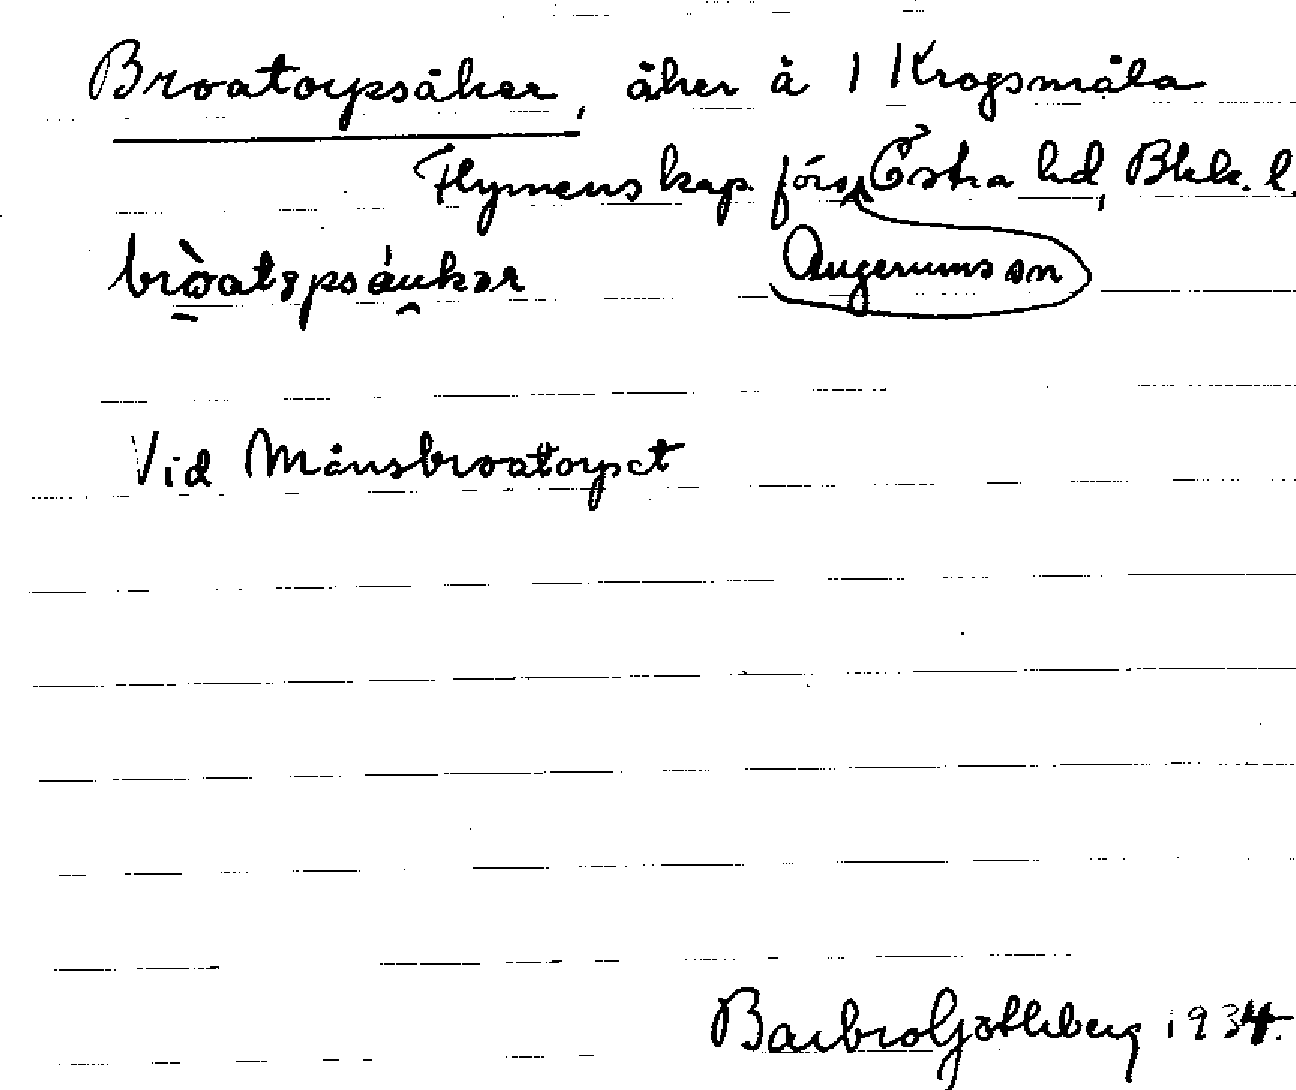 Broatorpsåker, åker å 1 Krogsmåla
Flymens kap. förs. Östra hd, Blek. l.
Augerums sn
Vid Månsbroatorpet
Barbro Götlberg 1934.